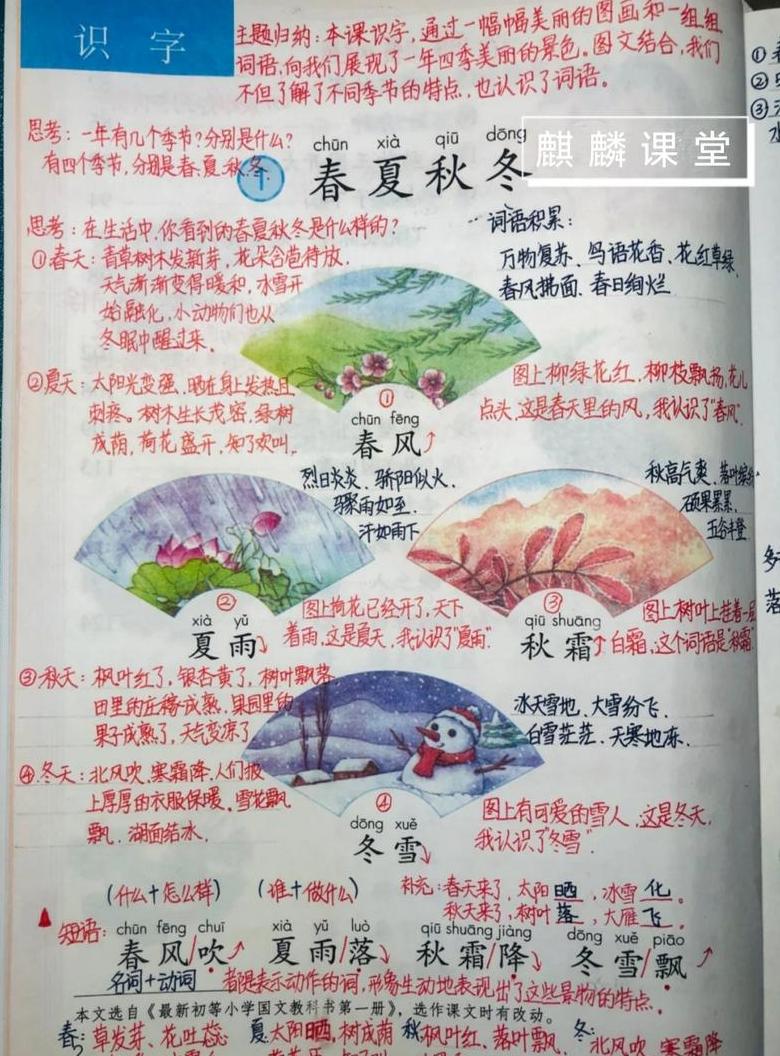 识 字
主题归纳：本课识字，通过一幅幅美丽的图画和一组组
词语，向我们展现了一年四季美丽的景色。图文结合，我们
不但了解了不同季节的特点，也认识了词语。
思考：一年有几个季节？分别是什么？
有四个季节，分别是春.夏.秋.冬.
chūn xià qiū dōng
1 春夏秋冬
麒麟课堂
思考：在生活中，你看到的春夏秋冬是什么样的？
词语积累：
万物复苏、鸟语花香、花红草绿、
春风拂面、春日绚烂
①春天：青草树木发新芽，花朵含苞待放.
天气渐渐变得暖和，冰雪开
始融化，小动物们也从
冬眠中醒过来。
②夏天：太阳光变强，晒在身上发热且
刺疼。树木生长茂密，绿树
成荫，荷花盛开，知了欢叫。
①
chūn fēng
春风
图上柳绿花红，柳枝飘扬，花儿
点头，这是春天里的风，我认识了"春风".
烈日炎炎、骄阳似火.
骤雨如至.
汗如雨下
秋高气爽、落叶缤纷
硕果累累.
五谷丰登
②
xià yǔ
夏雨
图上荷花已经开了，天下
着雨，这是夏天，我认识了"夏雨".
③
qiū shuāng
秋霜
图上树叶上挂着一层
白霜，这个词语是"秋霜
③秋天：枫叶红了，银杏黄了，树叶飘落
田里的庄稼成熟，果园里的
果子成熟了，天气变凉了
冰天雪地、大雪纷飞、
白雪茫茫、天寒地冻.
④冬天：北风吹、寒霜降，人们披
上厚厚的衣服保暖，雪花飘
飘，湖面结冰.
④
dōng xuě
冬雪
图上有可爱的雪人，这是冬天，
我认识了"冬雪".
（什么+怎么样） （谁+做什么）
补充：春天来了，太阳晒，冰雪化。
秋天来了，树叶落，大雁飞。
chūn fēng chuī xià yǔ luò qiū shuāng jiàng dōng xuě piāo
短语：春风/吹 夏雨/落 秋霜/降 冬雪/飘
名词+动词 都是表示动作的词，形象生动地表现出了这些景物的特点.
本文选自《最新初等小学国文教科书第一册》，选作课文时有改动。
春：草发芽、花吐蕊 夏：太阳晒，树成荫 秋：枫叶红、落叶飘、 冬：北风吹、寒霜降